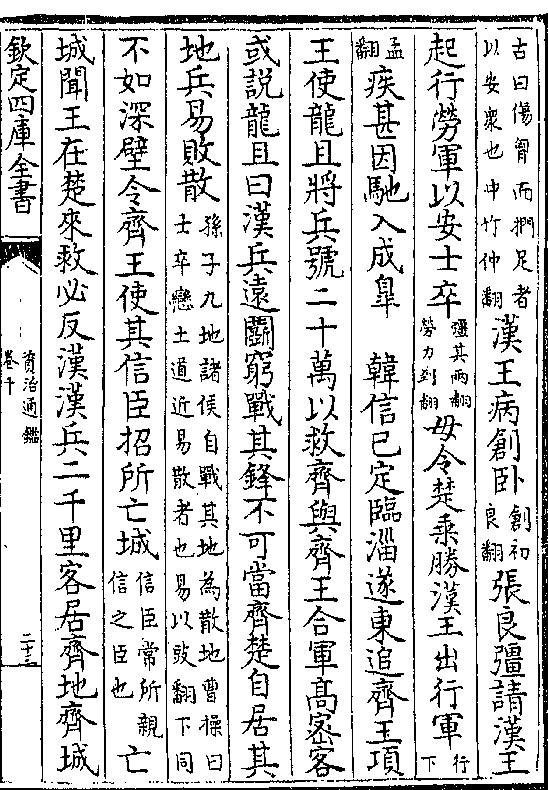 古曰傷胷而捫足者以安衆也中竹仲翻漢王病創卧創初良翻張良彊請漢王
起行勞軍以安士卒彊其兩翻勞力到翻毋令楚乘勝漢王出行軍行下
孟翻疾甚因馳入成臯　韓信已定臨淄遂東追齊王項
王使龍且將兵號二十萬以救齊與齊王合軍高密客
或說龍且曰漢兵遠鬭窮戰其鋒不可當齊楚自居其
地兵易敗散孫子九地諸侯自戰其地為散地曹操曰士卒戀土道近易散者也易以豉翻下同
不如深壁令齊王使其信臣招所亡城信臣常所親信之臣也亡
城聞王在楚來救必反漢漢兵二千里客居齊地齊城
欽定四庫全書
資治通鑑
卷十
二十三